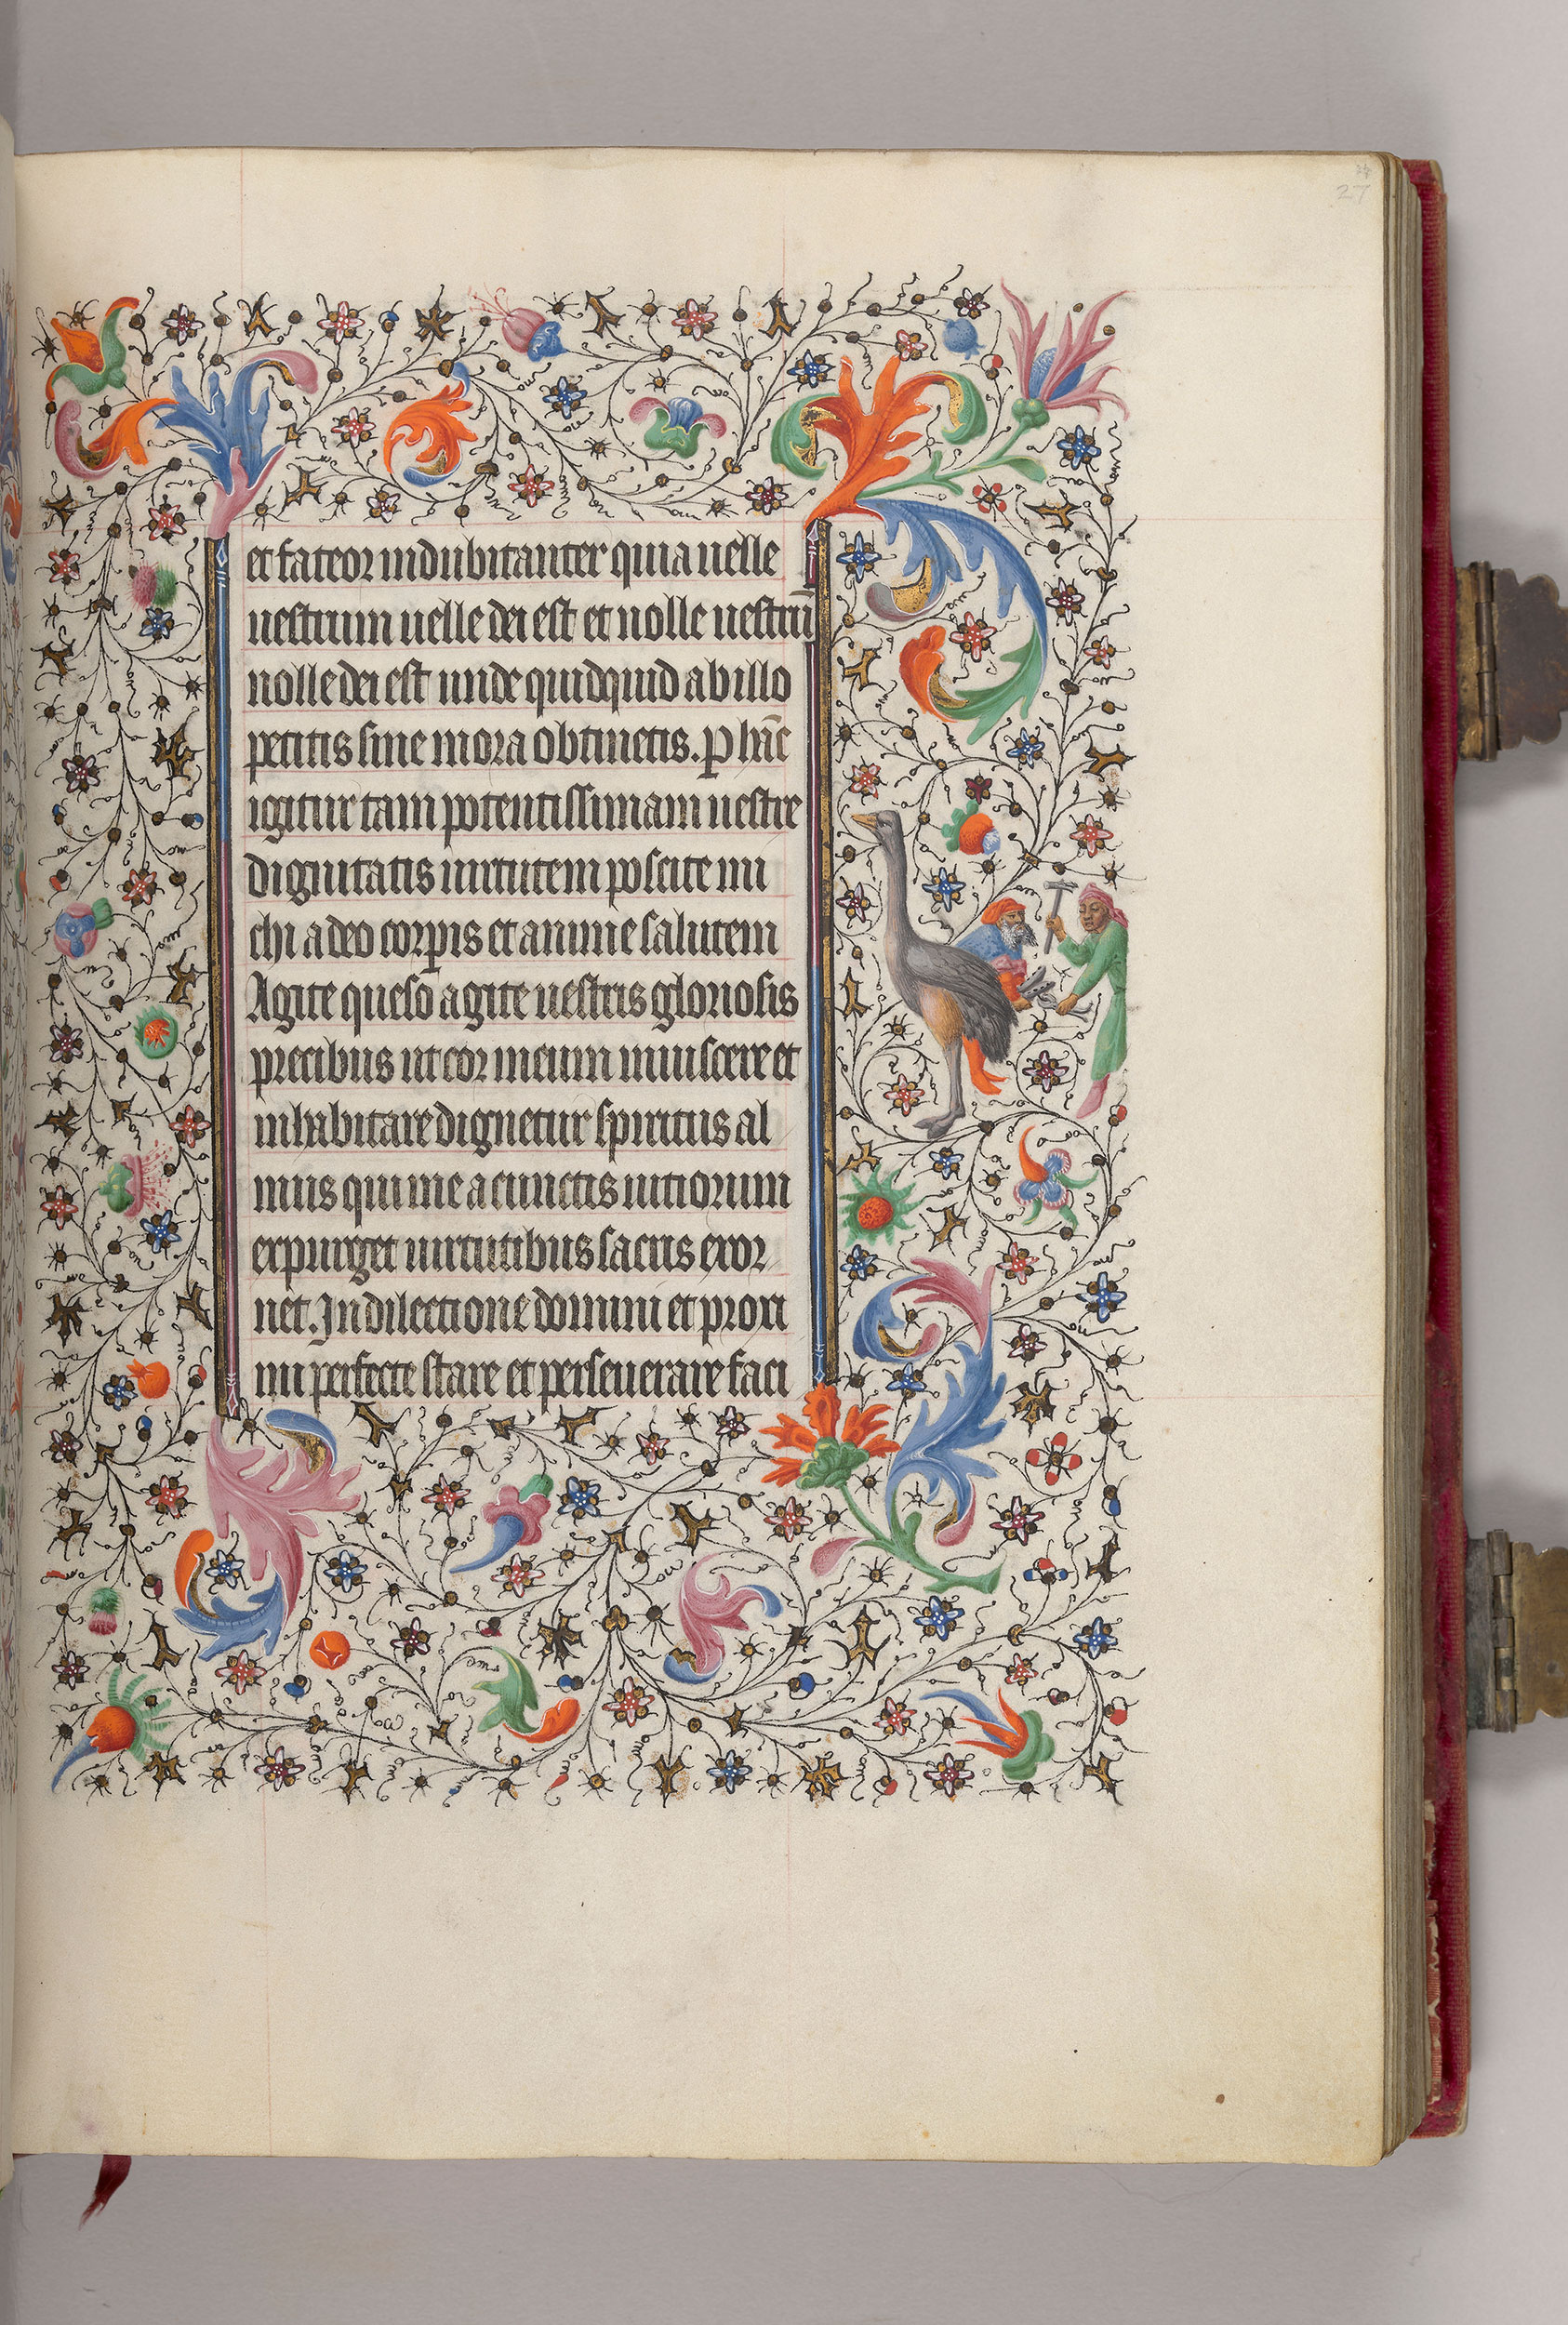 27
et fateor indubitanter quia uelle
uestrum uelle dei est et nolle uestrū
nolle dei est unde quidquid ab illo
petitis sine mora obtinetis. P hāc
igitur tam potentissimam uestre
dignitatis uirtutem poscite mi
chi a deo corpis et anime salutem
Agite queso agite uestris gloriosis
precibus ut cor meum inuiscere et
inhabitare dignetur spiritus al
mus qui me a cunctis uitiorum
expurget uirtutibus sacris exor
net. In dilectione domini et proxi
mi perfecte stare et perseuerare faci